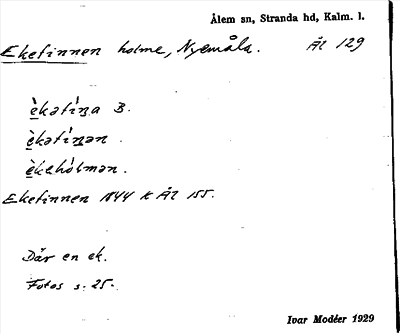 Ålem sn, Stranda hd, Kalm. l.
Ekefinnen holme, Nyemåla. Ål 129
è̱kəfìṉa B.
è̱kəfìṉən.
è̱kehólmən.
Ekefinnen 1844 k Ål 155.
Där en ek.
Fotos s. 25.
Ivar Modéer 1929